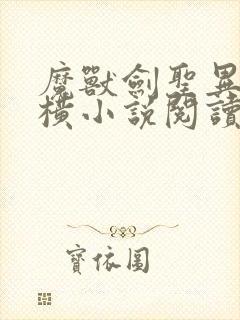 魔獸劍聖異
橫小說閱讀
寶依圖